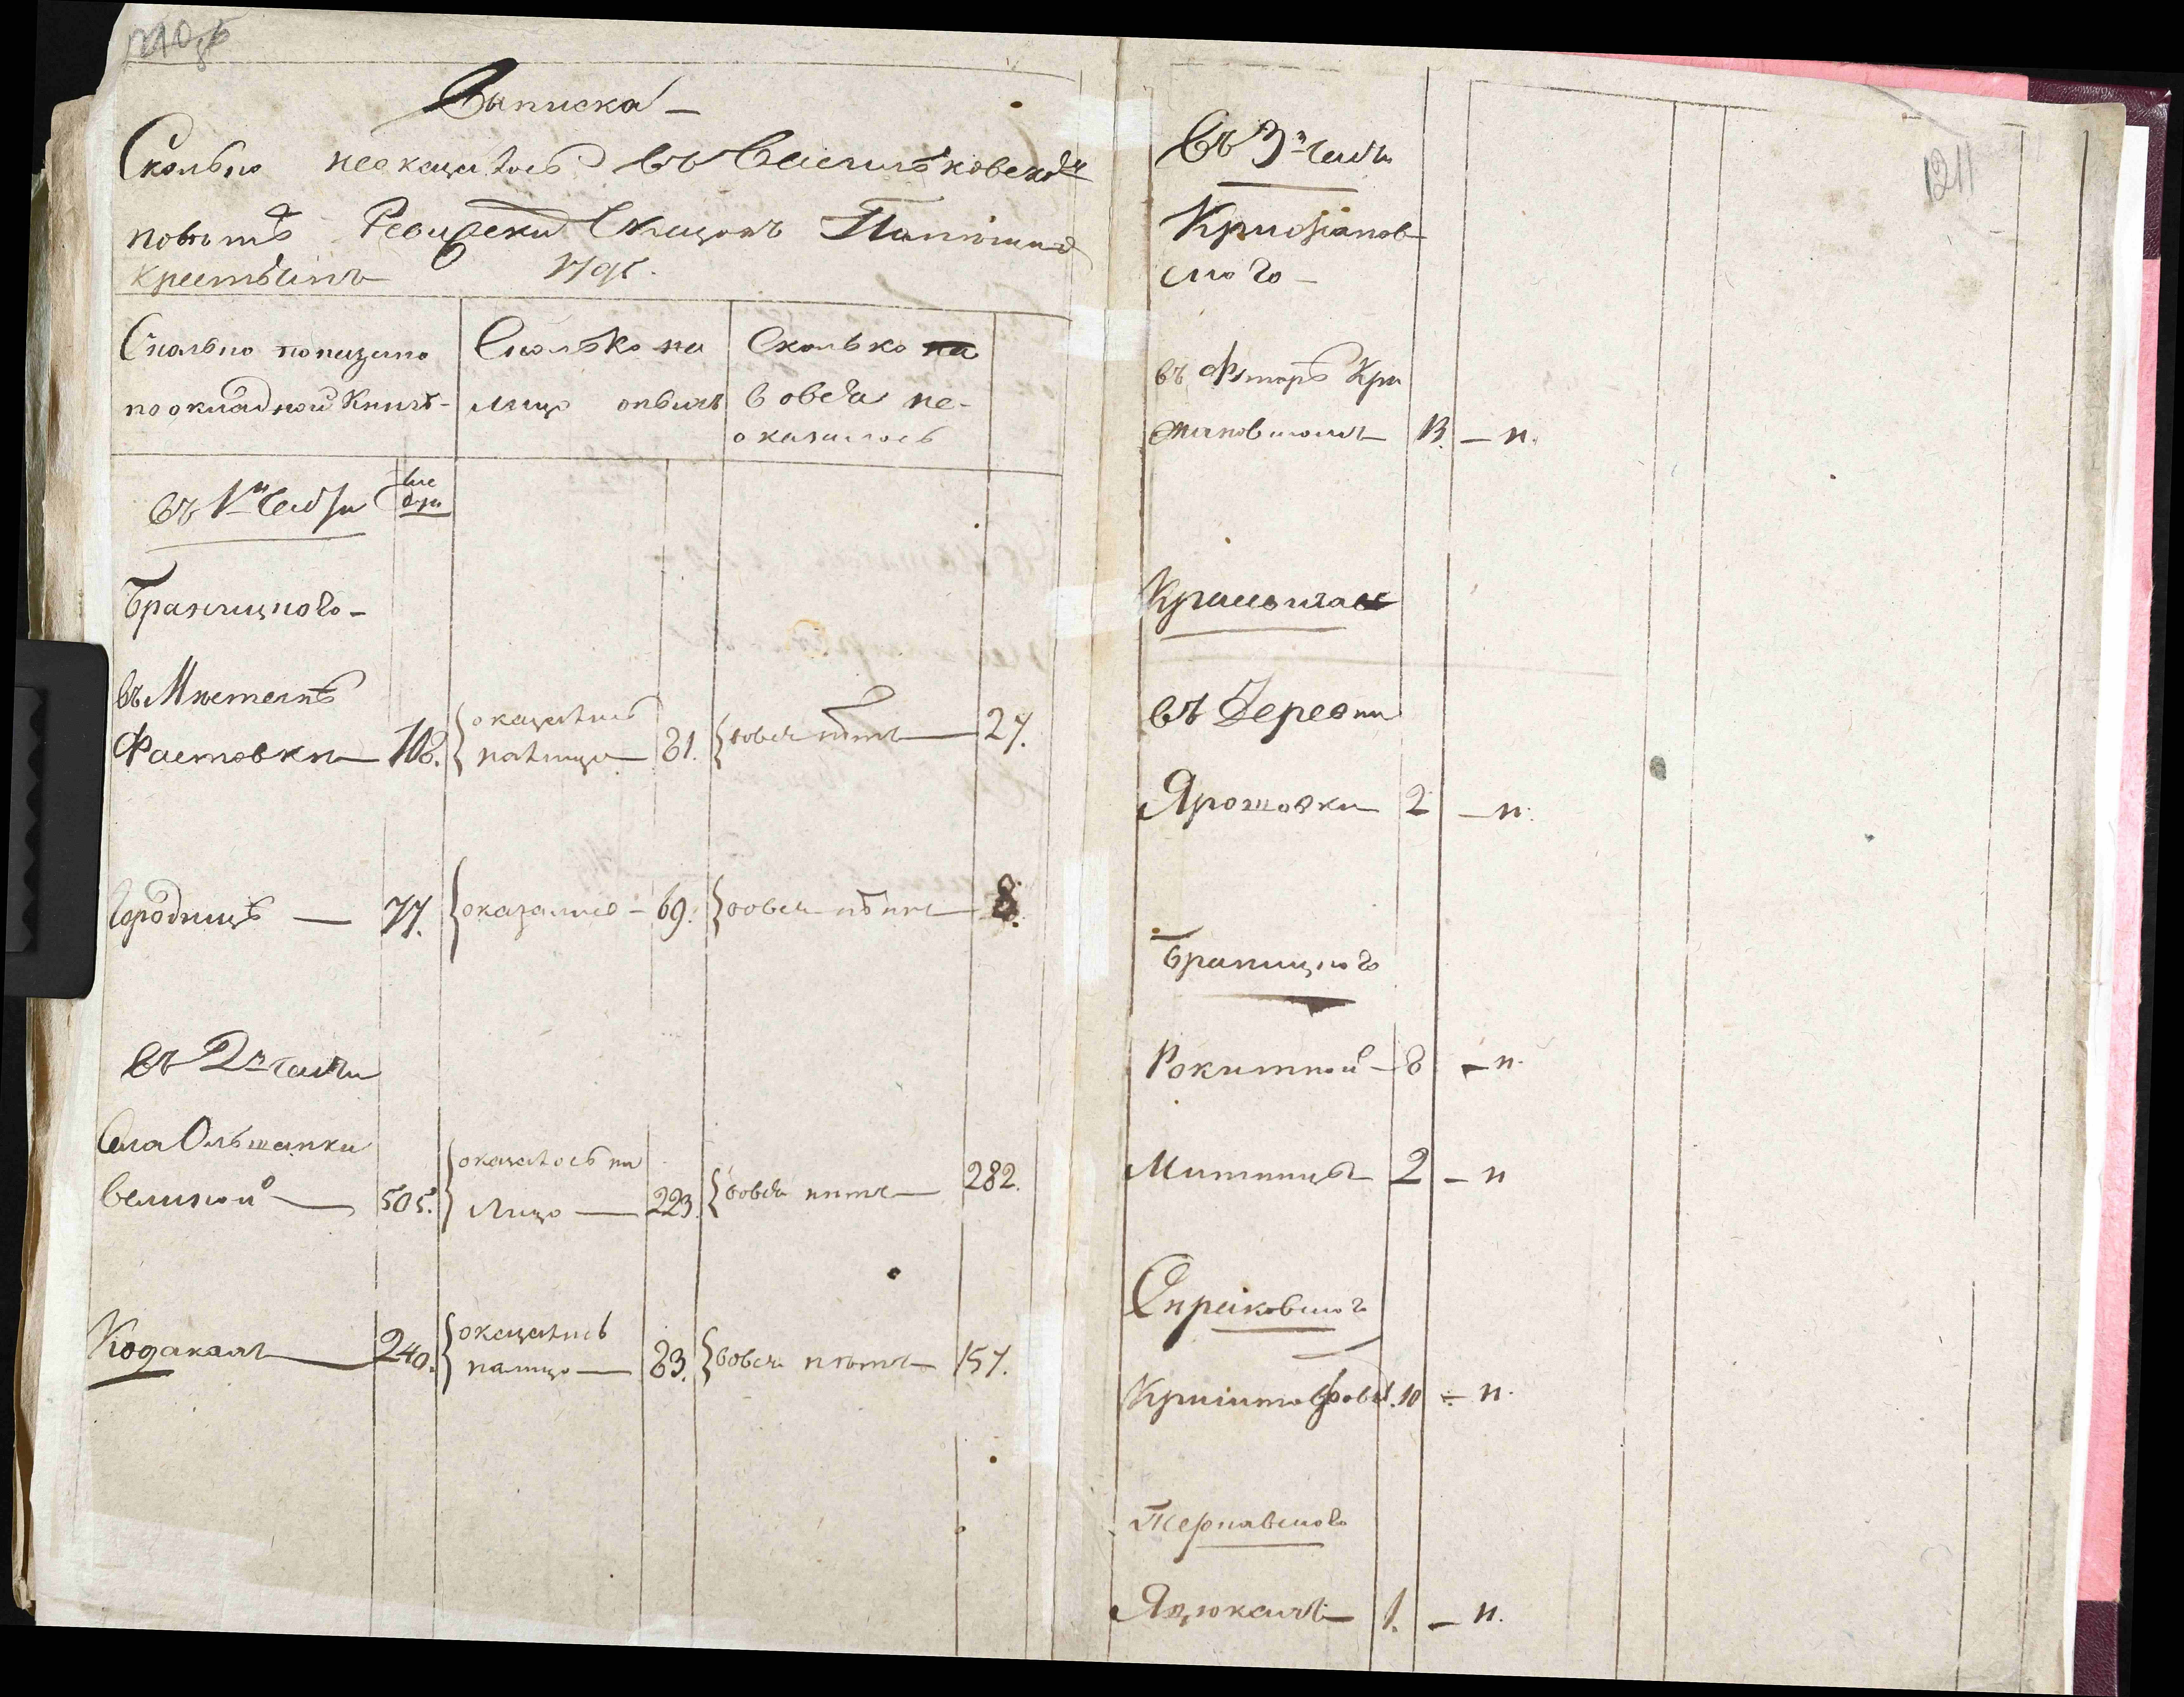 Выписка
Сколько неоказалось въ Васильковскомъ
повѣтѣ Ревизскихъ Сказокъ
крестьянъ 1795.
Сколько показано
по окладной Книгѣ
Сколько на
лицо
Сколько
вовся не-
оказалось
въ 1й Части
Браницкого
въ Мѣстечкѣ
Фастовки 108. оказалось налицо 81. вовся нѣтъ 27.
Городищѣ 77. оказалось 69. вовся нѣтъ 8.
въ 2й части
Села Ольшанки
великой 505. оказалось на лицо 223. вовся нѣтъ 282.
Кодакахъ 240. оказалось налицо 83. вовся нѣтъ 157.
1211
въ 3й части
Крижанов-
ского
въ Футорѣ Кри
жановскомъ 13. н.
въ Деревни
Ярошовки 2 н.
Браницкого
Рокитной 8 н.
Митницы 2 н
10 н.
Тернавского
Яцюкахъ 1. н.